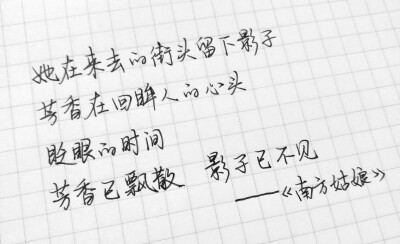 她在来去的街头留下影子
芳香在回眸人的心头
眨眼的时间
芳香已飘散 影子已不见
——《南方姑娘》